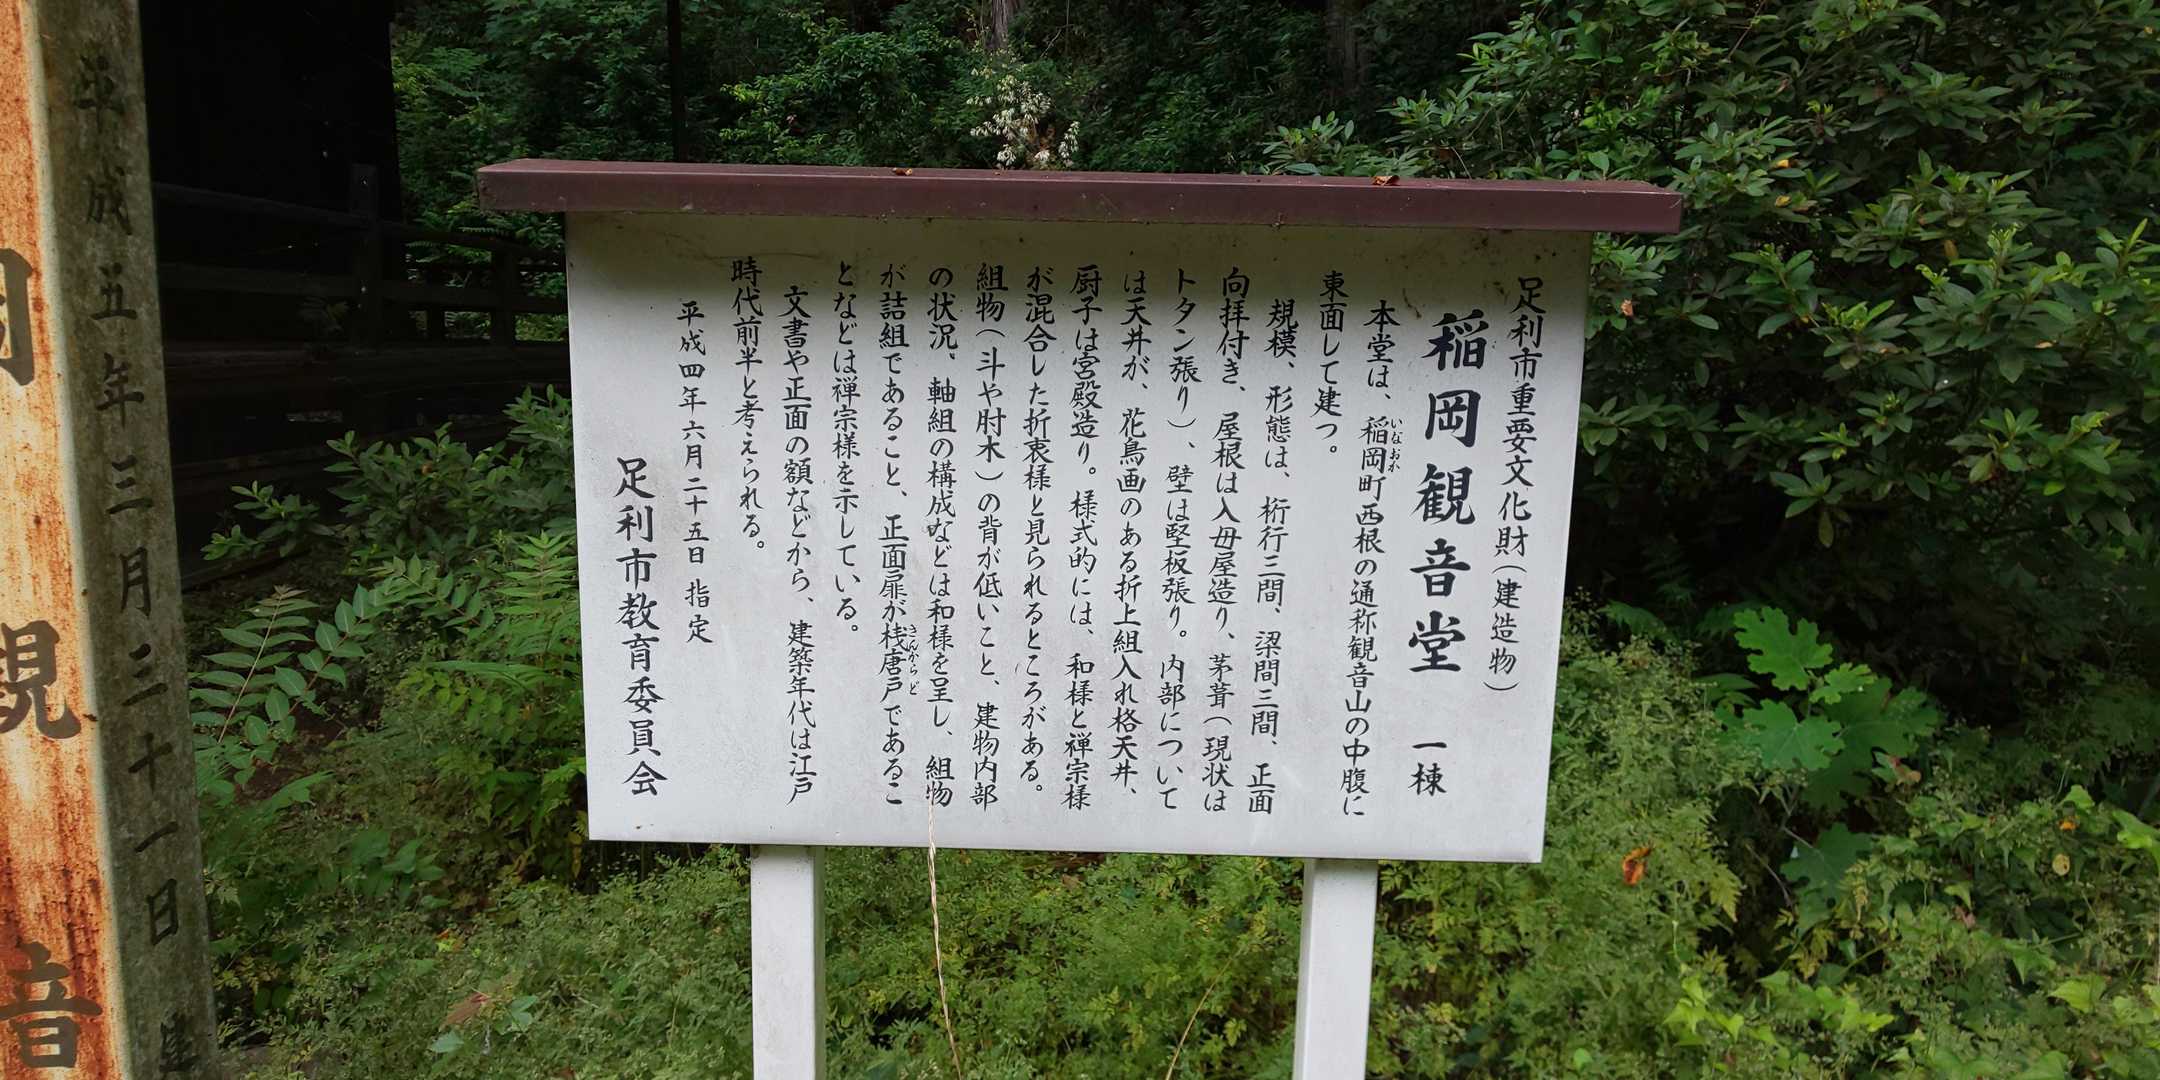 足利市重要文化財(建造物)
稲岡観音堂 一棟
本堂は、稲岡町西根の通称観音山の中腹に
いなおか
東面して建つ。
規模、形態は、桁行三間、梁間三間、正面
向拝付き、屋根は入母屋造り、茅葺(現状は
トタン張り)、壁は堅板張り。内部について
は天井が、花鳥画のある折上組入れ格天井、
厨子は宮殿造り。様式的には、和様と禅宗様
が混合した折衷様と見られるところがある。
組物(斗や肘木)の背が低いこと、建物内部
の状況、軸組の構成などは和様を呈し、組物
が詰組であること、正面扉が桟唐戸であるこ
さんからど
となどは禅宗様を示している。
文書や正面の額などから、建築年代は江戸
時代前半と考えられる。
平成四年六月二十五日 指定
足利市教育委員会
平成五年三月三十一日建
岡観音